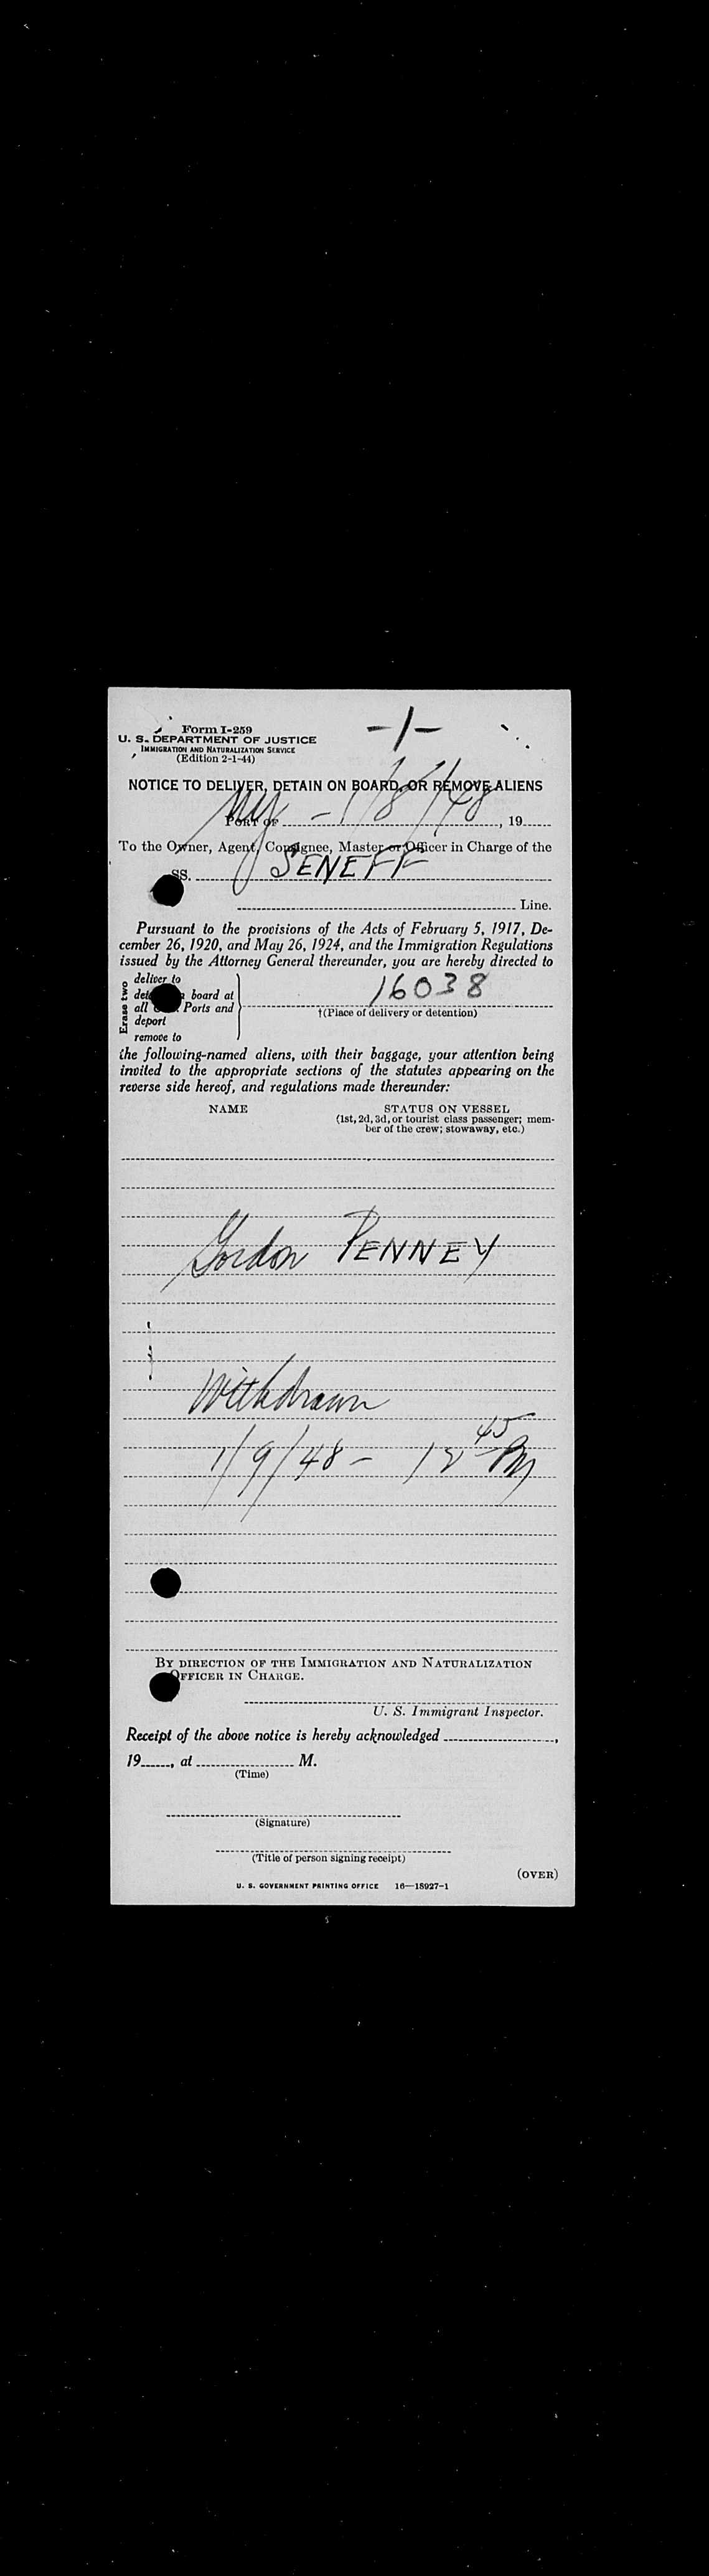 Form I-259
-1-
U. S. DEPARTMENT OF JUSTICE
IMMIGRATION AND NATURALIZATION SERVICE
(Edition 2-1-44)
NOTICE TO DELIVER, DETAIN ON BOARD, OR REMOVE ALIENS
PORT OF NY - 1/8/48, 19
To the Owner, Agent, Consignee, Master or Officer in Charge of the
SS. SENEFF
Line.
Pursuant to the provisions of the Acts of February 5, 1917, De-
cember 26, 1920, and May 26, 1924, and the Immigration Regulations
issued by the Attorney General thereunder, you are hereby directed to
Erase two
deliver to
board at
all Ports and
deport
remove to
16038
†(Place of delivery or detention)
the following-named aliens, with their baggage, your attention being
invited to the appropriate sections of the statutes appearing on the
reverse side hereof, and regulations made thereunder:
NAME STATUS ON VESSEL
(1st, 2d, 3d, or tourist class passenger; mem-
ber of the crew; stowaway, etc.)
Gordon PENNEY
Withdrawn
1/9/48 - 12 45 PM
BY DIRECTION OF THE IMMIGRATION AND NATURALIZATION
OFFICER IN CHARGE.
U. S. Immigrant Inspector.
Receipt of the above notice is hereby acknowledged ,
19 , at M.
(Time)
(Signature)
(Title of person signing receipt)
(OVER)
U. S. GOVERNMENT PRINTING OFFICE 16—18927-1